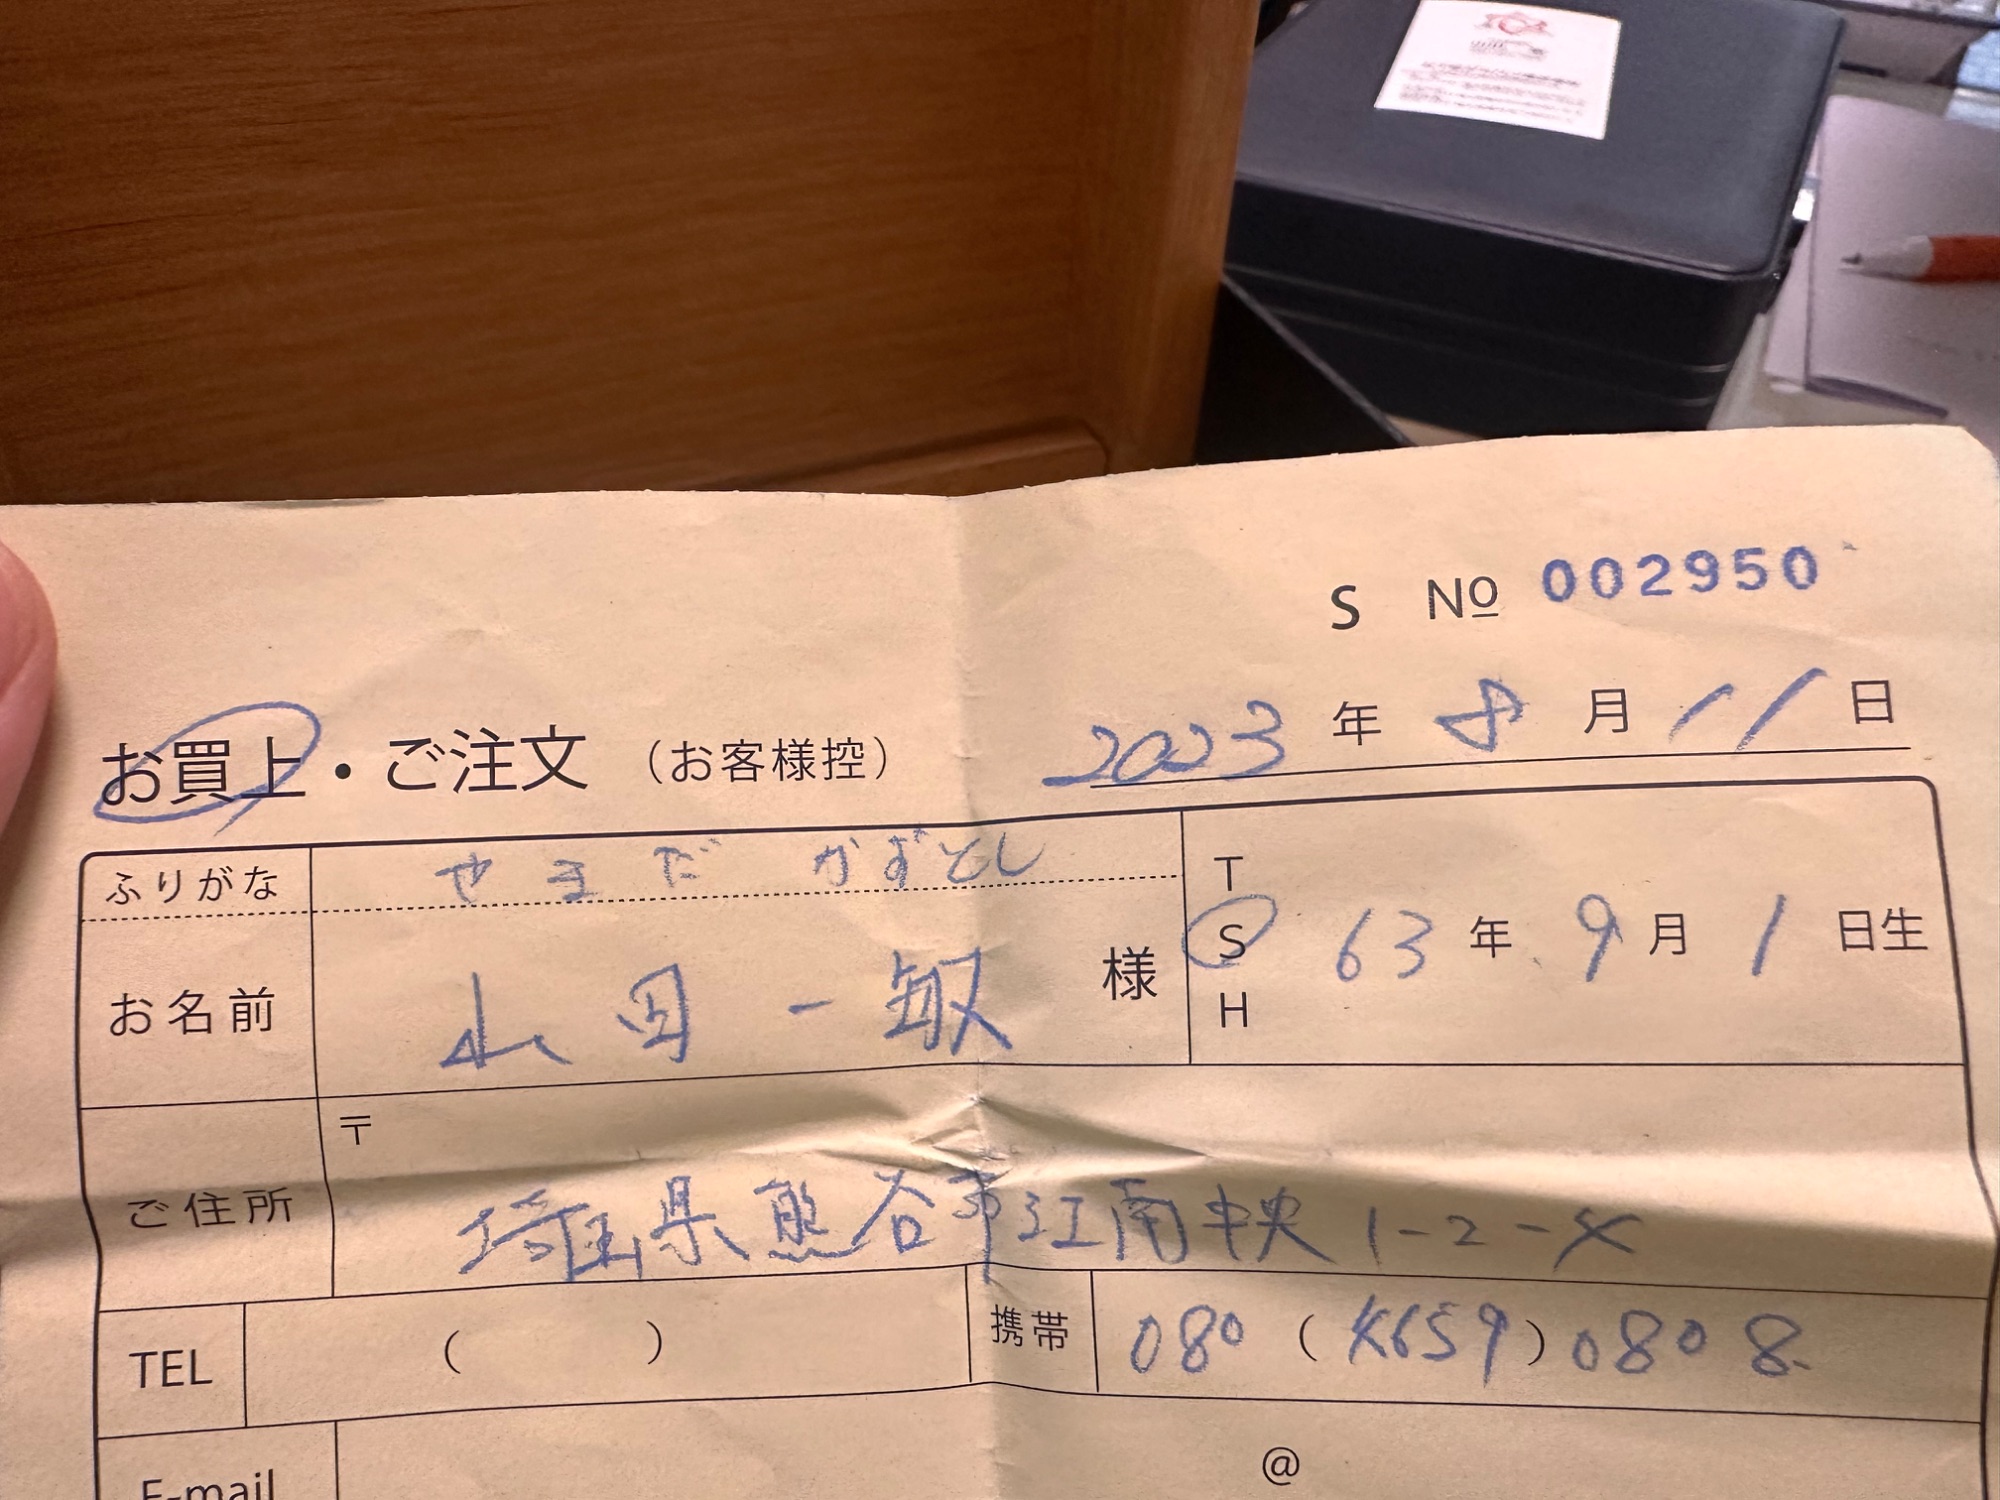 S № 002950
2023年 8月 11日
お買上・ご注文（お客様控）
ふりがな やまだ かずとし
お名前 山田 一敏 様
T
S 63年 9月 1日生
H
〒
ご住所 埼玉県熊谷市江南中央1-2-
TEL （ ） 携帯 080（ ）0808
E-mail @